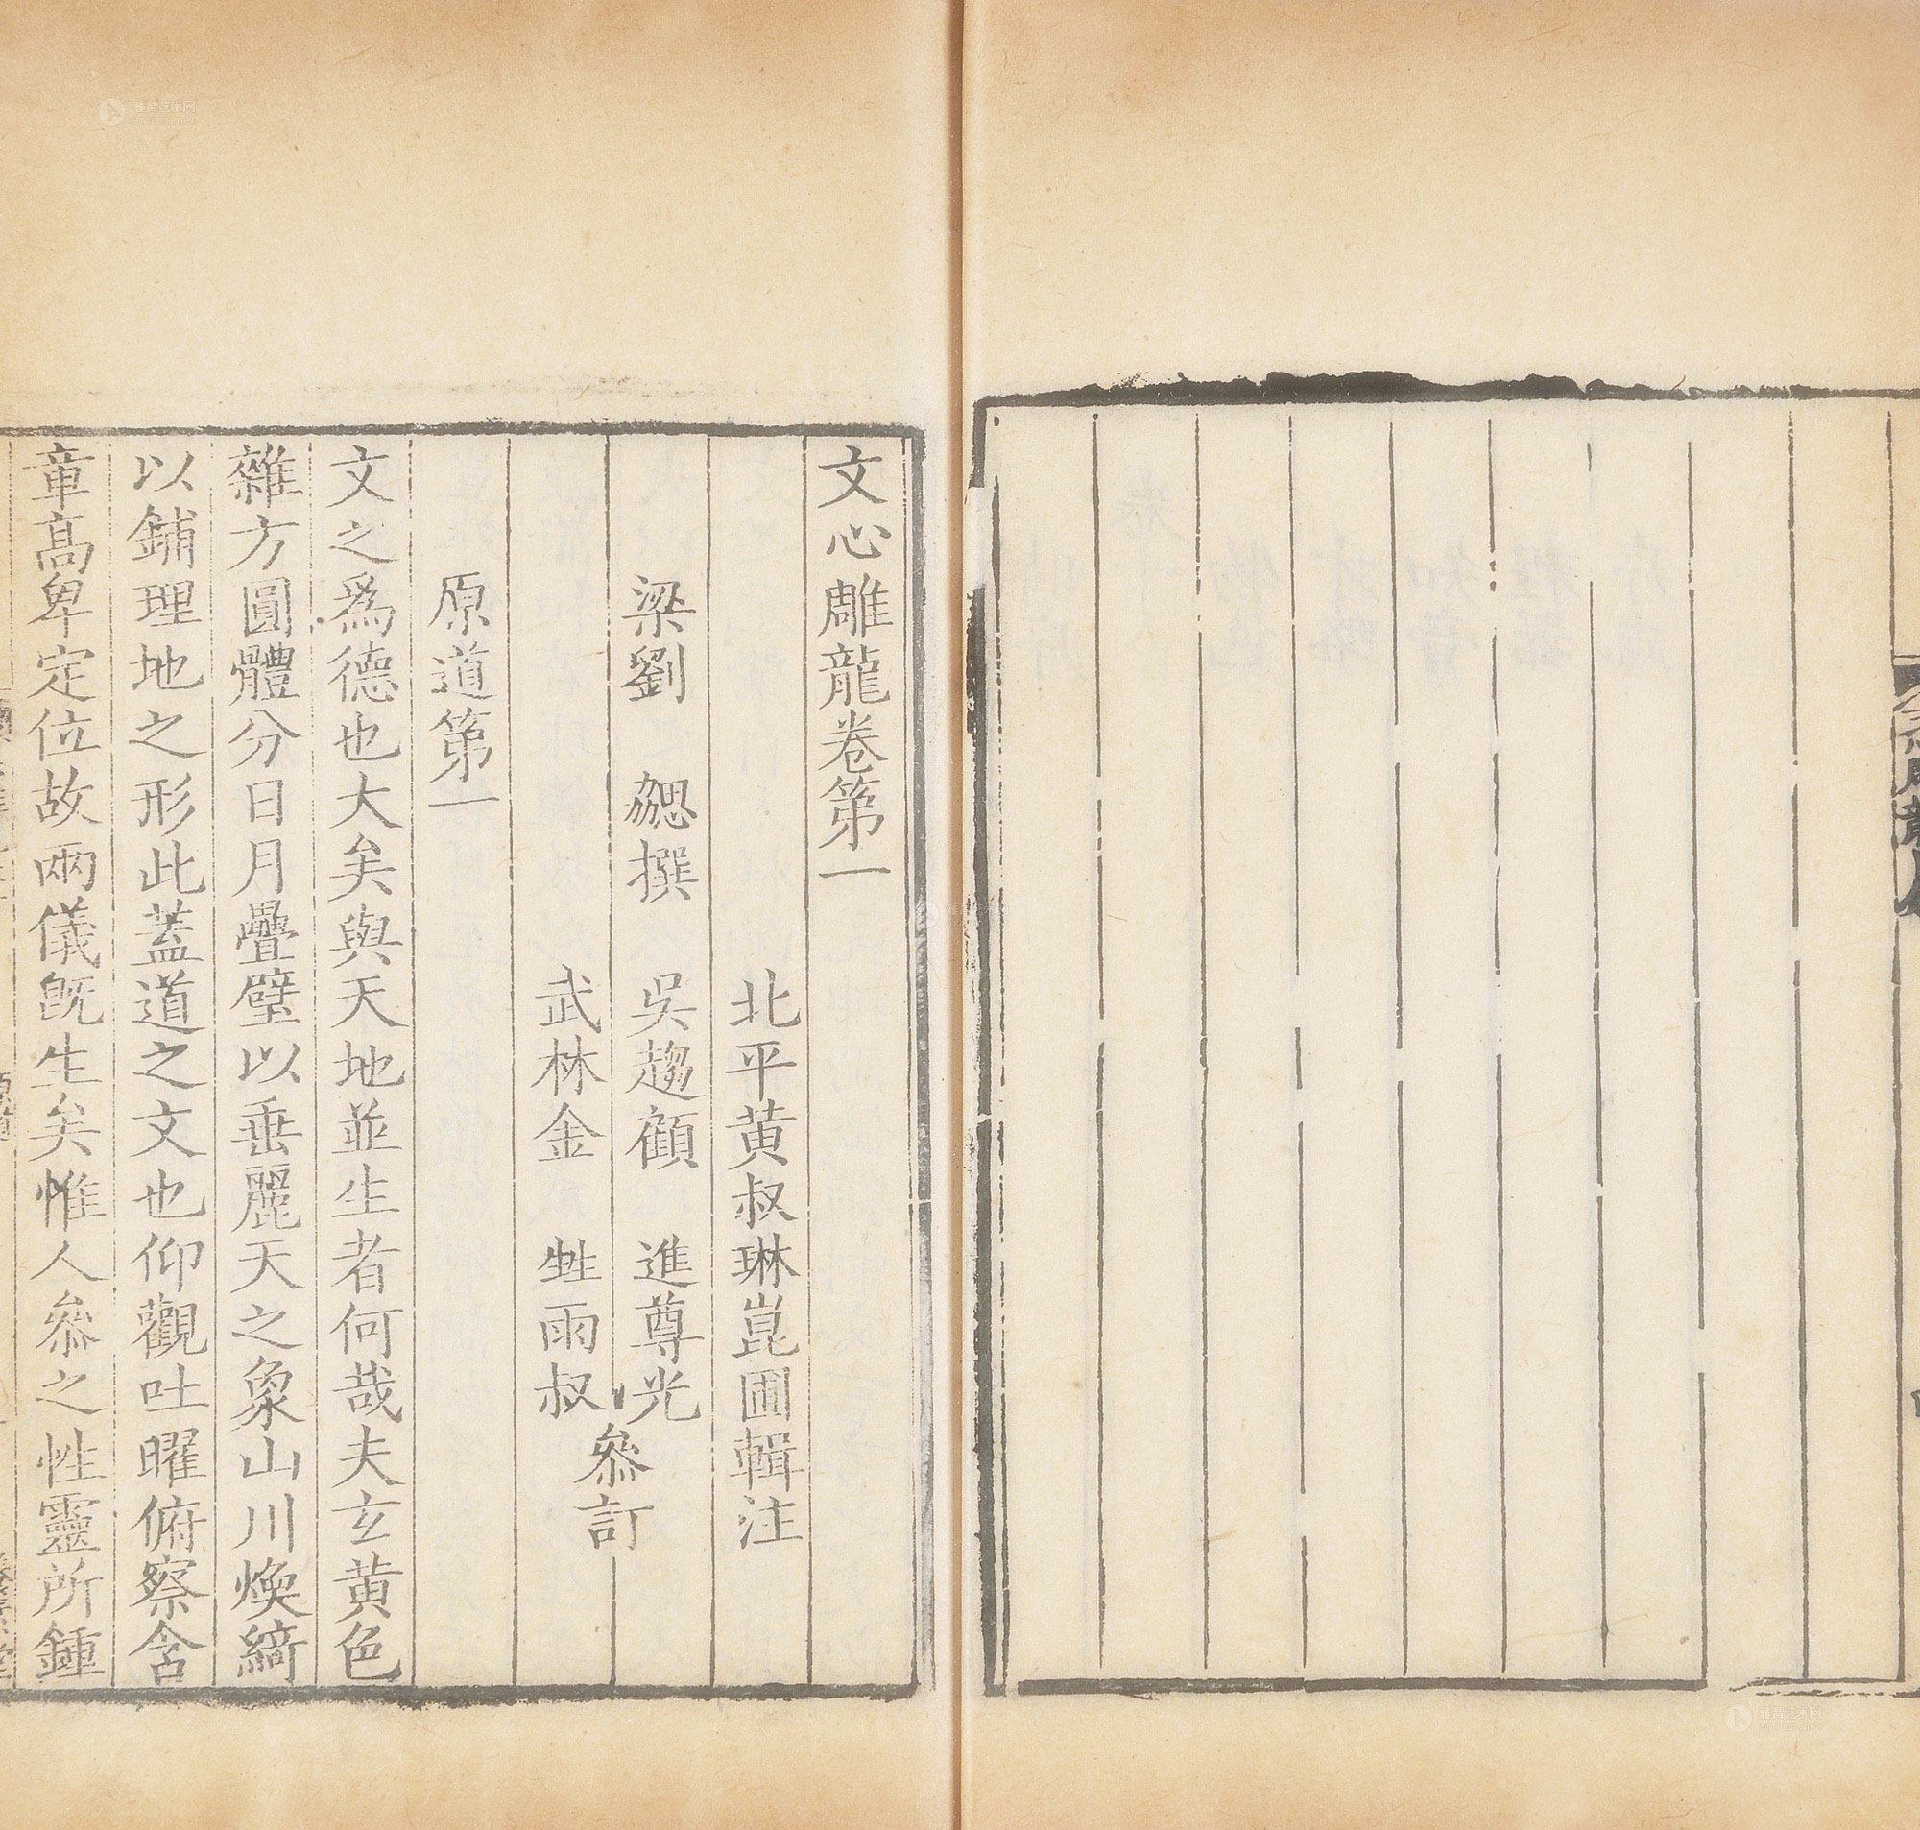 文心雕龍卷第一
北平黄叔琳崑圃輯注
梁劉　勰撰　吳趨顧　進尊光
武林金　甡雨叔
參訂
原道第一
文之爲德也大矣與天地並生者何哉夫玄黄色
雜方圓體分日月疊璧以垂麗天之象山川煥綺
以鋪理地之形此蓋道之文也仰觀吐曜俯察含
章高卑定位故兩儀旣生矣惟人參之性靈所鍾